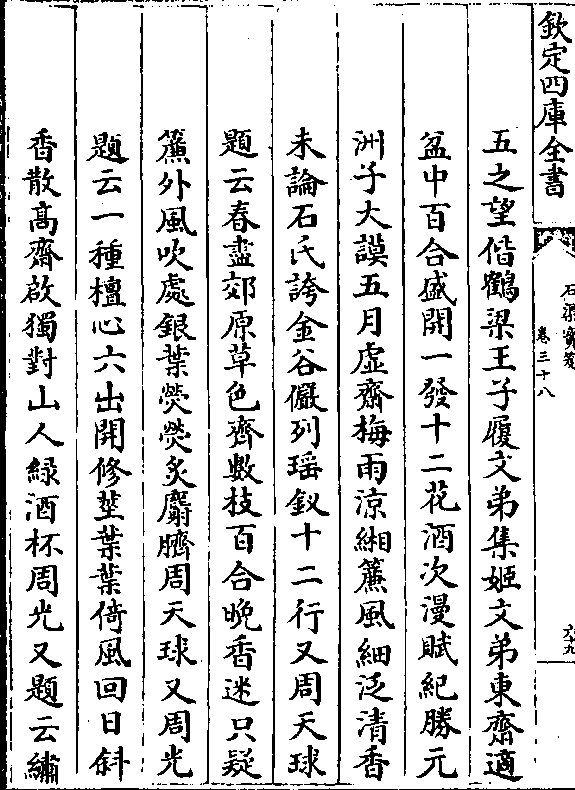 欽定四庫全書
石渠寶笈
卷三十八
六十九
五之望偕鶴梁王子履文弟集姬文弟東齋適
盆中百合盛開一發十二花酒次漫賦紀勝元
洲子大謨五月虛齋梅雨涼緗簾風細泛清香
未論石氏誇金谷儼列瑶釵十二行又周天球
題云春盡郊原草色齊數枝百合晚香迷只疑
簾外風吹處銀葉熒熒炙麝臍周天球又周光
題云一種檀心六出開修莖葉葉倚風回日斜
香散髙齋啟獨對山人緑酒杯周光又題云繡